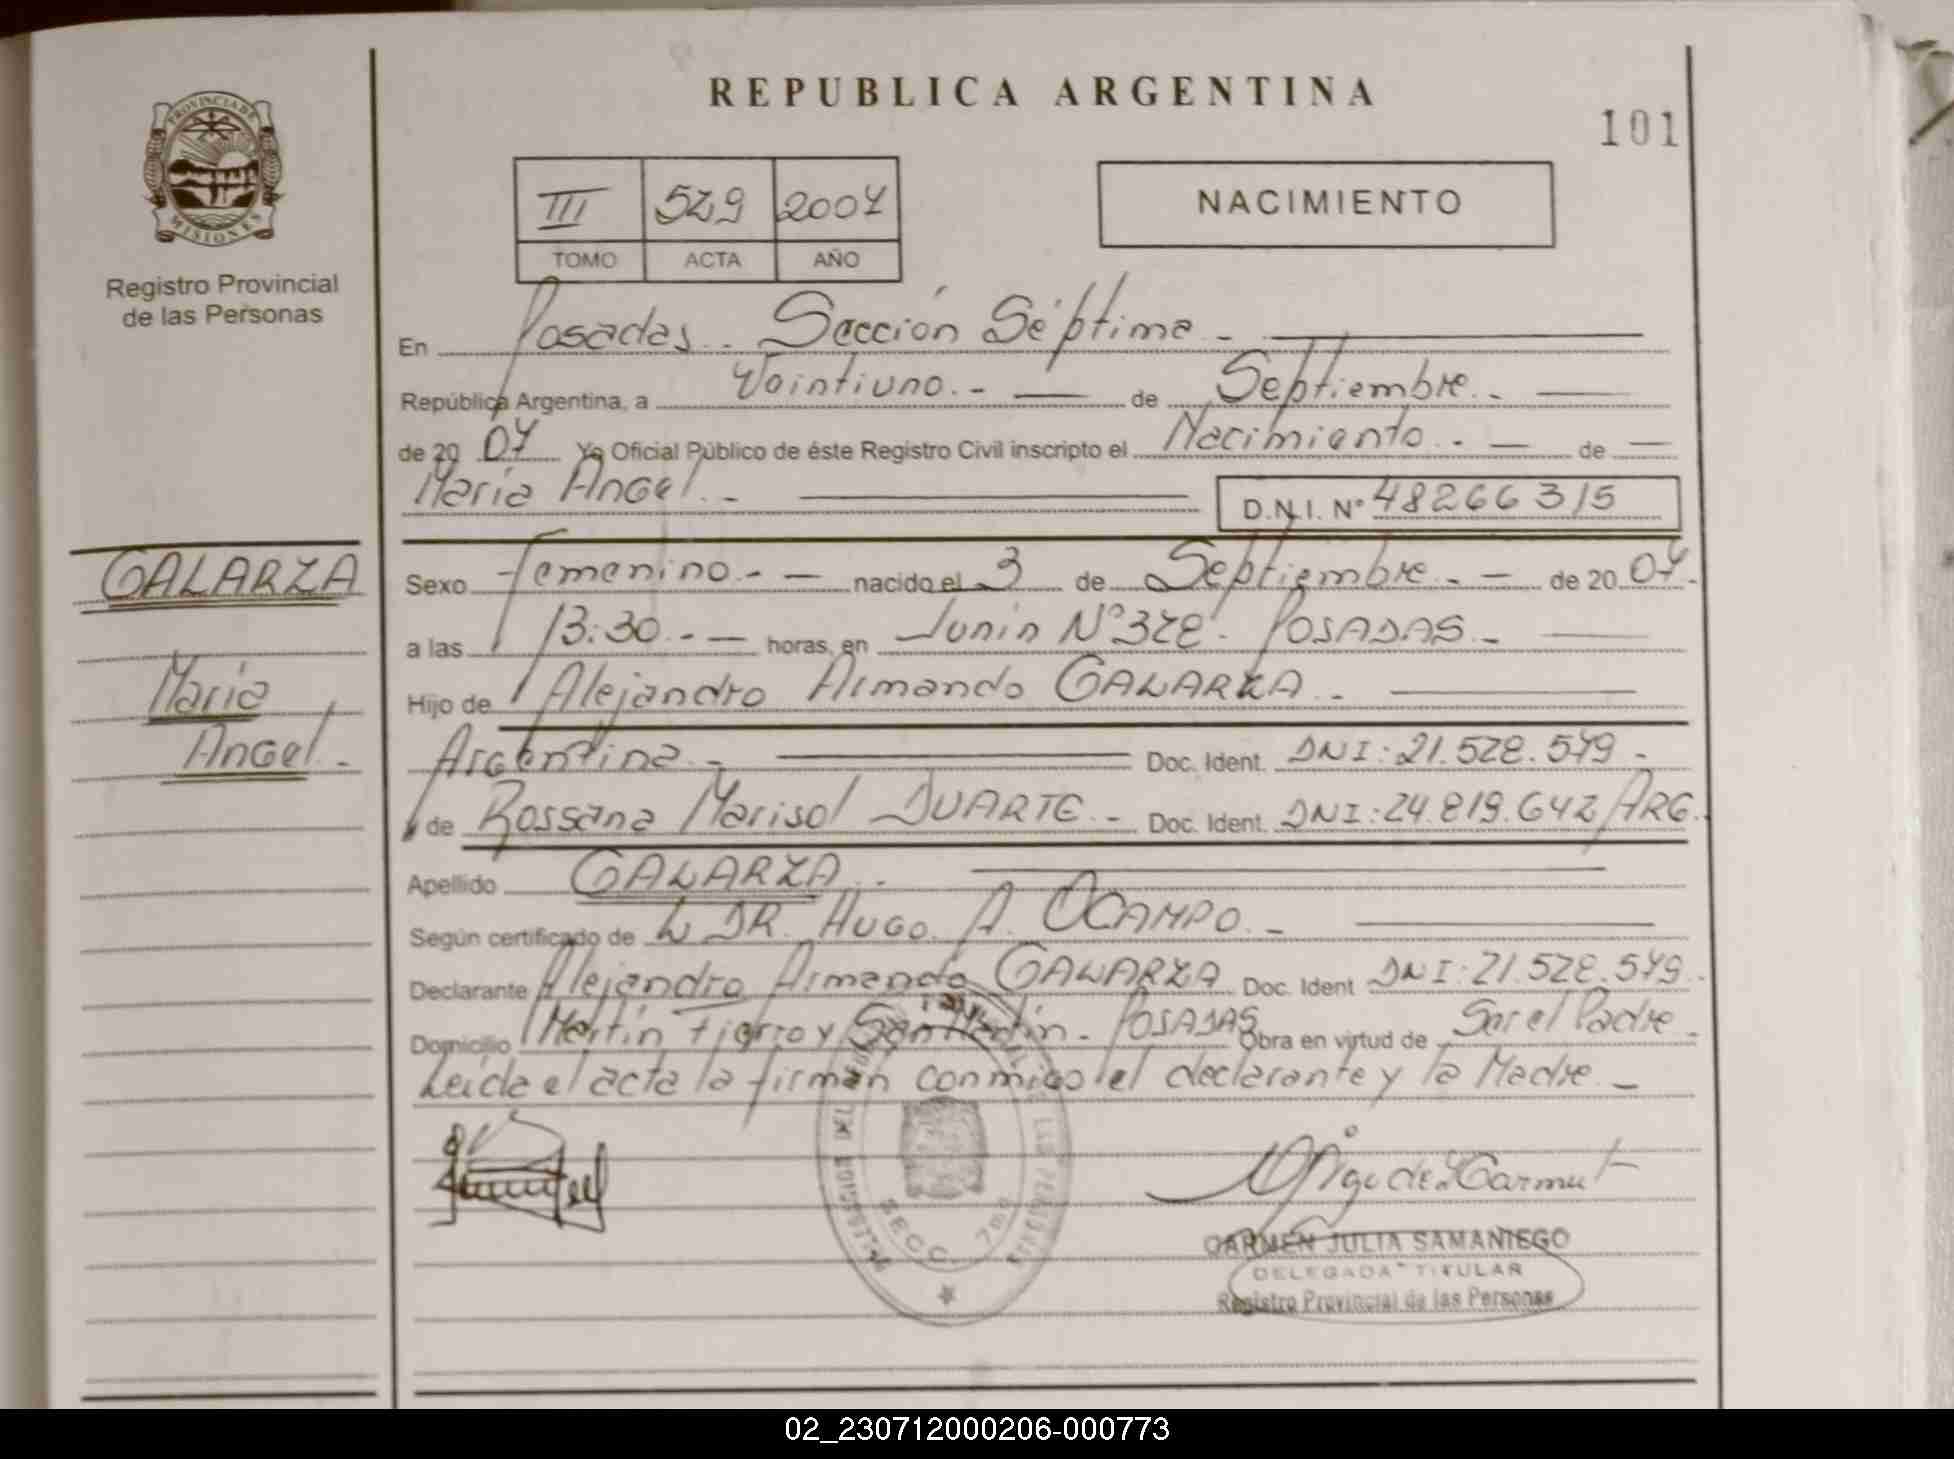 REPUBLICA ARGENTINA
101
PROVINCIA DE MISIONES
Registro Provincial
de las Personas
III 529 2007
TOMO ACTA AÑO
NACIMIENTO
En Posadas.. Sección Séptima -
República Argentina, a Veintiuno.- de Septiembre.-
de 20 07 Yo Oficial Público de éste Registro Civil inscripto el Nacimiento.- de
María Angel.- D.N.I. Nº 48266315
GALARZA
María
Angel.-
Sexo Femenino.- nacido el 3 de Septiembre.- de 20 07-
a las 13:30.- horas, en Junín Nº 328. POSADAS.-
Hijo de Alejandro Armando GALARZA.-
Argentina.- Doc. Ident. DNI: 21.528.579.-
y de Rossana Marisol DUARTE.- Doc. Ident. DNI: 24.819.642/ARG.
Apellido GALARZA.-
Según certificado de DR. HUGO. A. OCAMPO.-
Declarante Alejandro Armando GALARZA Doc. Ident DNI: 21.528.579.
Domicilio Martín Fierro y San Martín - POSADAS Obra en virtud de Ser el Padre -
Leída el acta la firman conmigo el declarante y la Madre.-
SECC. 7ma
CARMEN JULIA SAMANIEGO
DELEGADA TITULAR
Registro Provincial de las Personas
02_230712000206-000773